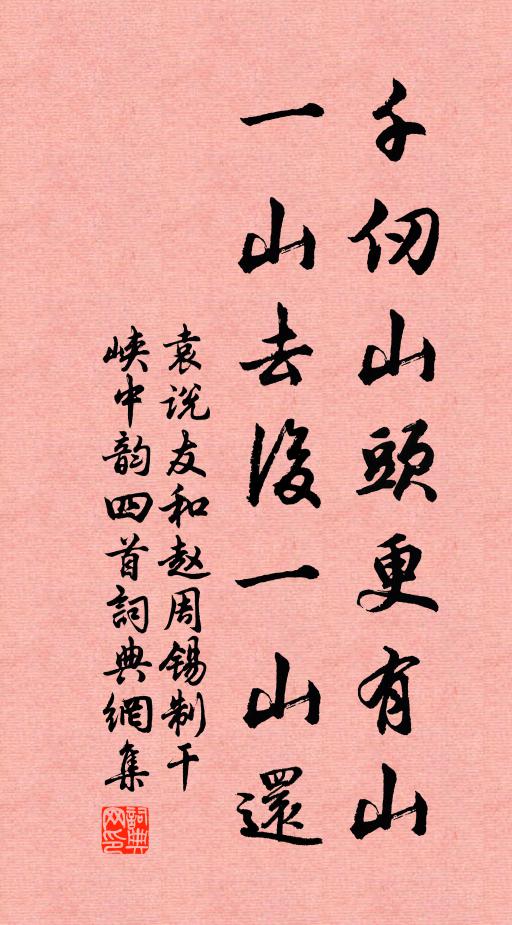 千仞山頭更有山
一山去後一山還
袁说友和赵周锡制干
峡中韵四首詞典網集
詞典网印